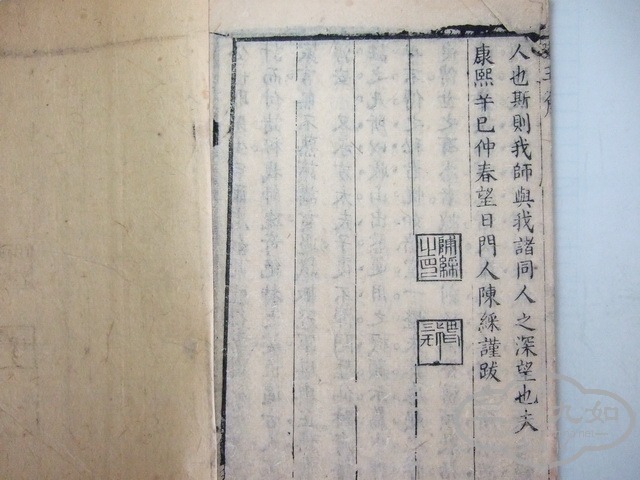 人也斯則我師與我諸同人之深望也夫
康熙辛巳仲春望日門人陳綵謹跋
陳綵之印
九如